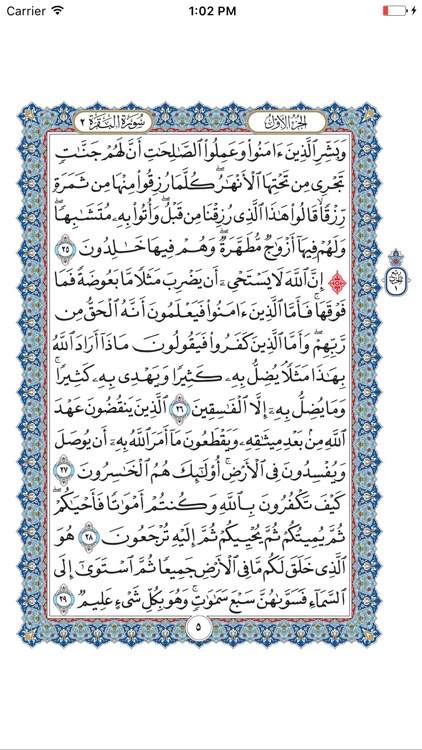 Carrier 1:02 PM
الجزء الأول
سورة البقرة ٢
وَبَشِّرِ ٱلَّذِينَ ءَامَنُوا۟ وَعَمِلُوا۟ ٱلصَّٰلِحَٰتِ أَنَّ لَهُمْ جَنَّٰتٍ
تَجْرِى مِن تَحْتِهَا ٱلْأَنْهَٰرُ ۖ كُلَّمَا رُزِقُوا۟ مِنْهَا مِن ثَمَرَةٍ
رِّزْقًا ۙ قَالُوا۟ هَٰذَا ٱلَّذِى رُزِقْنَا مِن قَبْلُ ۖ وَأُتُوا۟ بِهِۦ مُتَشَٰبِهًا ۖ
وَلَهُمْ فِيهَآ أَزْوَٰجٌ مُّطَهَّرَةٌ ۖ وَهُمْ فِيهَا خَٰلِدُونَ ٢٥
إِنَّ ٱللَّهَ لَا يَسْتَحْىِۦٓ أَن يَضْرِبَ مَثَلًا مَّا بَعُوضَةً فَمَا
فَوْقَهَا ۚ فَأَمَّا ٱلَّذِينَ ءَامَنُوا۟ فَيَعْلَمُونَ أَنَّهُ ٱلْحَقُّ مِن
رَّبِّهِمْ ۖ وَأَمَّا ٱلَّذِينَ كَفَرُوا۟ فَيَقُولُونَ مَاذَآ أَرَادَ ٱللَّهُ
بِهَٰذَا مَثَلًا ۘ يُضِلُّ بِهِۦ كَثِيرًا وَيَهْدِى بِهِۦ كَثِيرًا ۚ
وَمَا يُضِلُّ بِهِۦٓ إِلَّا ٱلْفَٰسِقِينَ ٢٦ ٱلَّذِينَ يَنقُضُونَ عَهْدَ
ٱللَّهِ مِنۢ بَعْدِ مِيثَٰقِهِۦ وَيَقْطَعُونَ مَآ أَمَرَ ٱللَّهُ بِهِۦٓ أَن يُوصَلَ
وَيُفْسِدُونَ فِى ٱلْأَرْضِ ۚ أُو۟لَٰٓئِكَ هُمُ ٱلْخَٰسِرُونَ ٢٧
كَيْفَ تَكْفُرُونَ بِٱللَّهِ وَكُنتُمْ أَمْوَٰتًا فَأَحْيَٰكُمْ ۖ
ثُمَّ يُمِيتُكُمْ ثُمَّ يُحْيِيكُمْ ثُمَّ إِلَيْهِ تُرْجَعُونَ ٢٨ هُوَ
ٱلَّذِى خَلَقَ لَكُم مَّا فِى ٱلْأَرْضِ جَمِيعًا ثُمَّ ٱسْتَوَىٰٓ إِلَى
ٱلسَّمَآءِ فَسَوَّىٰهُنَّ سَبْعَ سَمَٰوَٰتٍ ۚ وَهُوَ بِكُلِّ شَىْءٍ عَلِيمٌ ٢٩
٥